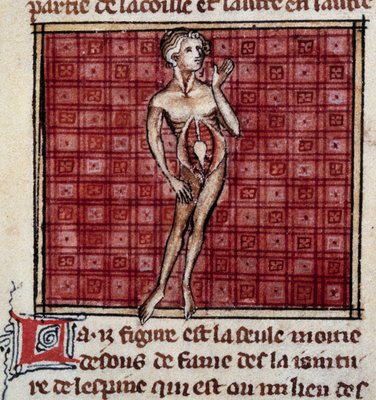 partie de la coule et lautre en lautre
La .13. figure est la seule moitie
desous de fame des la iointu
re de lespine qui est ou milieu des